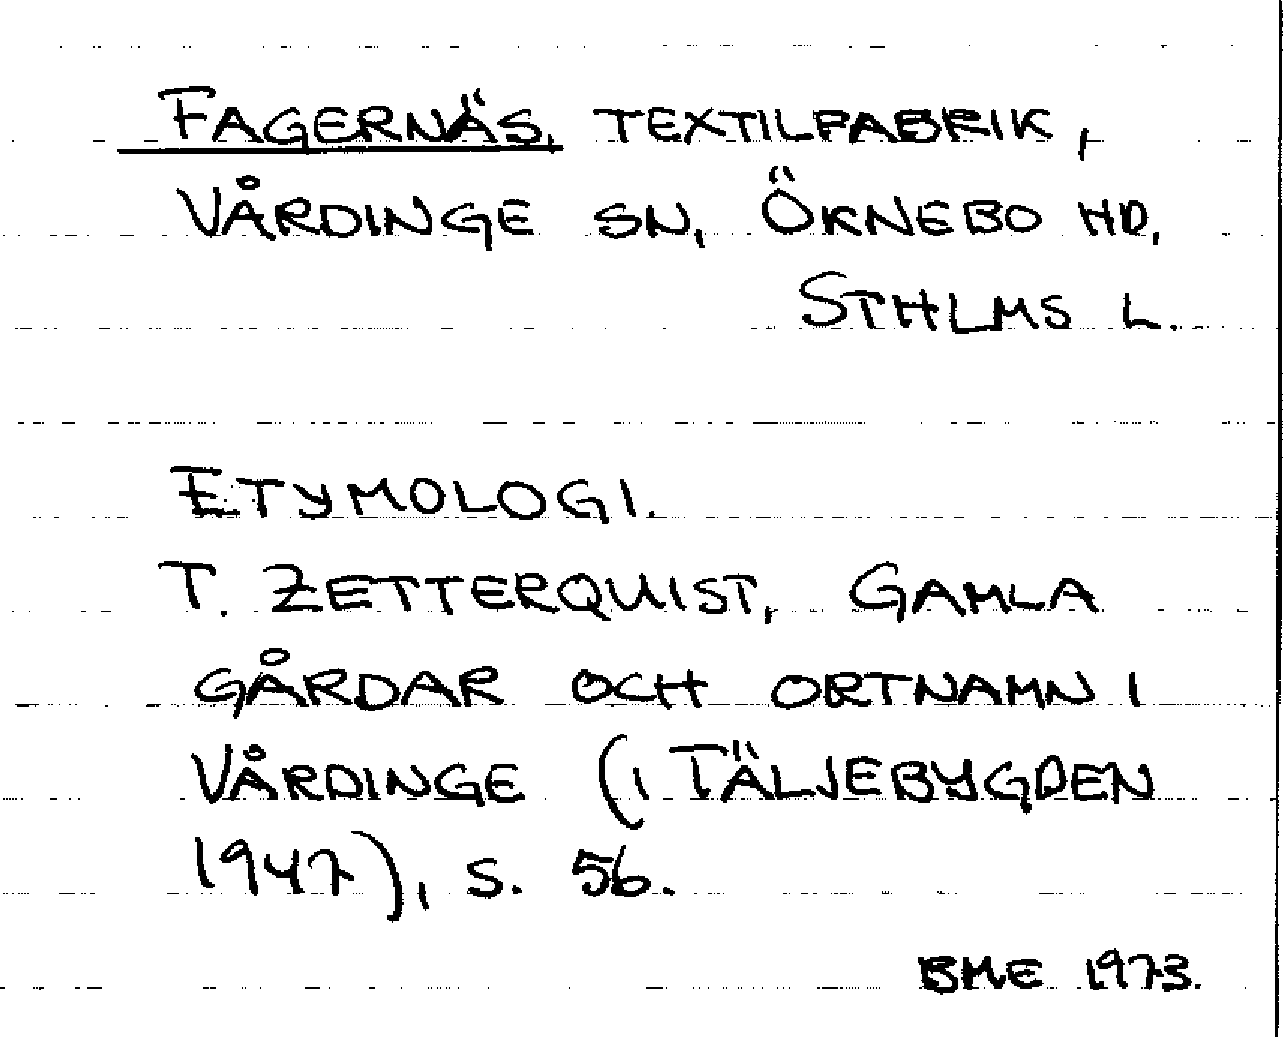 FAGERNÄS, TEXTILFABRIK,
VÅRDINGE SN, ÖKNEBO HD,
STHLMS L.
ETYMOLOGI.
T. ZETTERQUIST, GAMLA
GÅRDAR OCH ORTNAMN I
VÅRDINGE (I TÄLJEBYGDEN
1947), S. 56.
BME 1973.